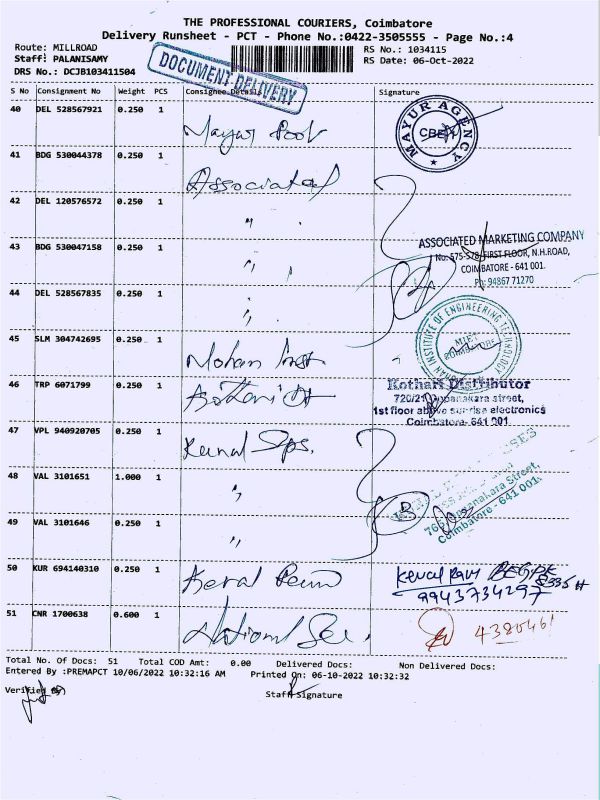 THE PROFESSIONAL COURIERS, Coimbatore
Delivery Runsheet - PCT - Phone No.:0422-3505555 - Page No.:4
Route: MILLROAD
RS No.: 1034115
Staff: PALANISAMY
RS Date: 06-Oct-2022
DRS No.: DCJB103411504
DOCUMENT DELIVERY
S No Consignment No Weight PCS Consignee Details Signature
40 DEL 528567921 0.250 1
MAYUR AGENCY
41 BDG 530044378 0.250 1 Associated
42 DEL 120576572 0.250 1 "
43 BDG 530047158 0.250 1 "
ASSOCIATED MARKETING COMPANY
No. 575-578, FIRST FLOOR, N.H.ROAD,
COIMBATORE - 641 001.
Ph: 94867 71270
44 DEL 528567835 0.250 1 "
INSTITUTE OF ENGINEERING TECHNOLOGY
COIMBATORE
45 SLM 304742695 0.250 1 Mohan
46 TRP 6071799 0.250 1
Kothari Distributor
720/21 Oppanakara street,
1st floor above sunrise electronics
Coimbatore- 641 001
47 VPL 940920705 0.250 1
48 VAL 3101651 1.000 1 "
Oppanakara Street,
Coimbatore - 641 001.
49 VAL 3101646 0.250 1 "
50 KUR 694140310 0.250 1
9943734297
51 CNR 1700638 0.600 1 National
Total No. Of Docs: 51 Total COD Amt: 0.00 Delivered Docs: Non Delivered Docs:
Entered By :PREMAPCT 10/06/2022 10:32:16 AM Printed On: 06-10-2022 10:32:32
Verified By
Staff Signature